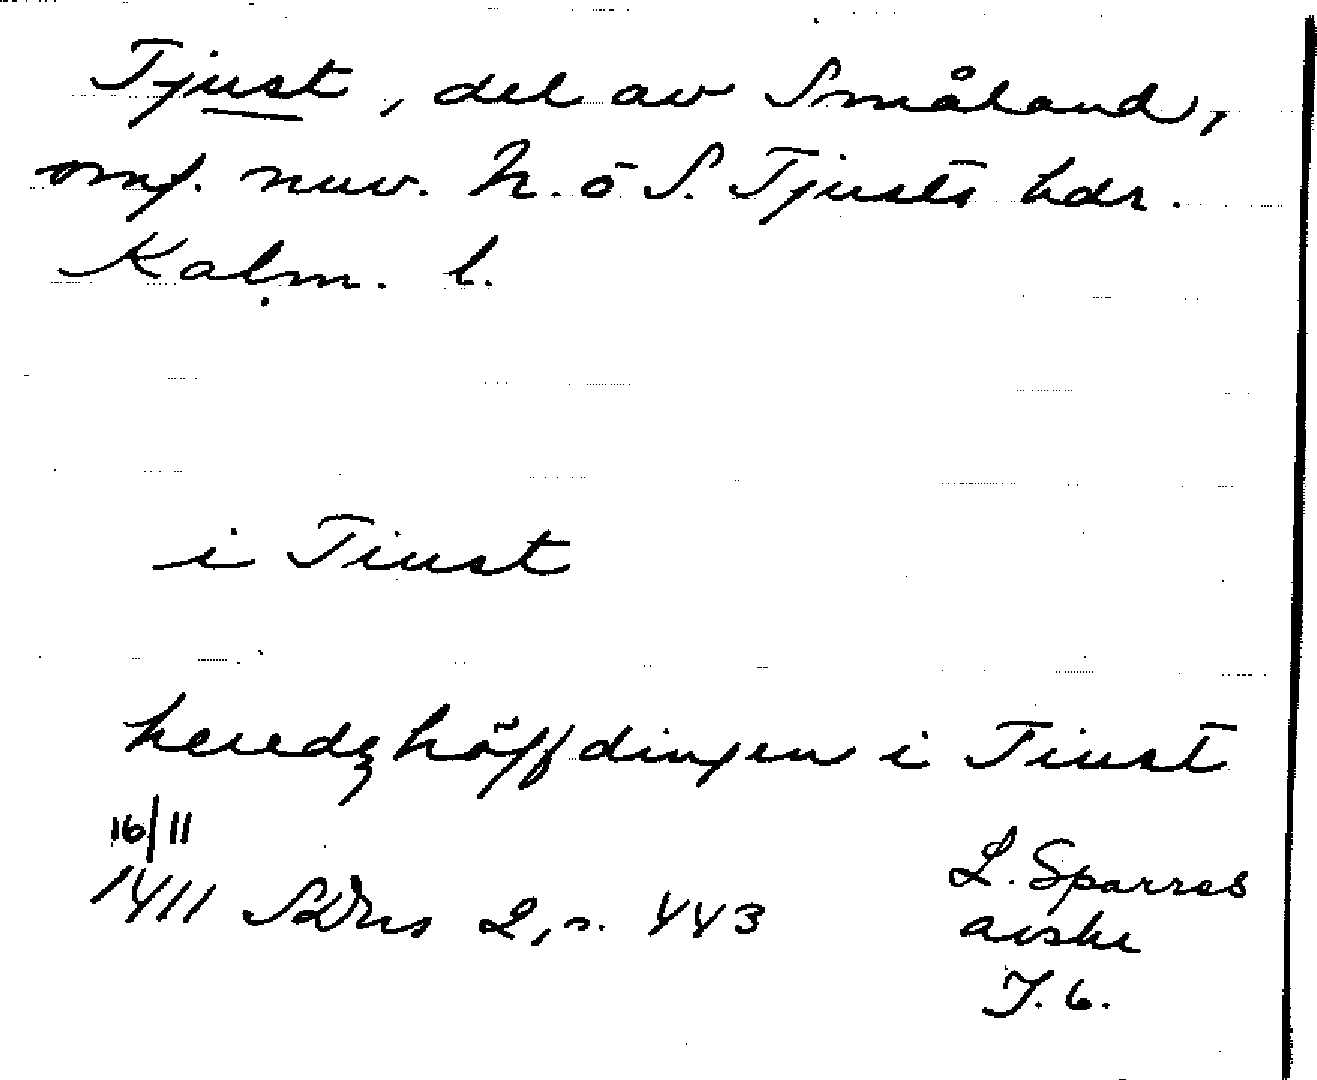 Tjust, del av Småland,
omf. nuv. N. o S. Tjusts hdr.
Kalm. l.
i Tiust
heredzhöffdingen i Tiust
16/11
1411 SDns 2, s. 443
L. Sparres
avskr
T. 6.